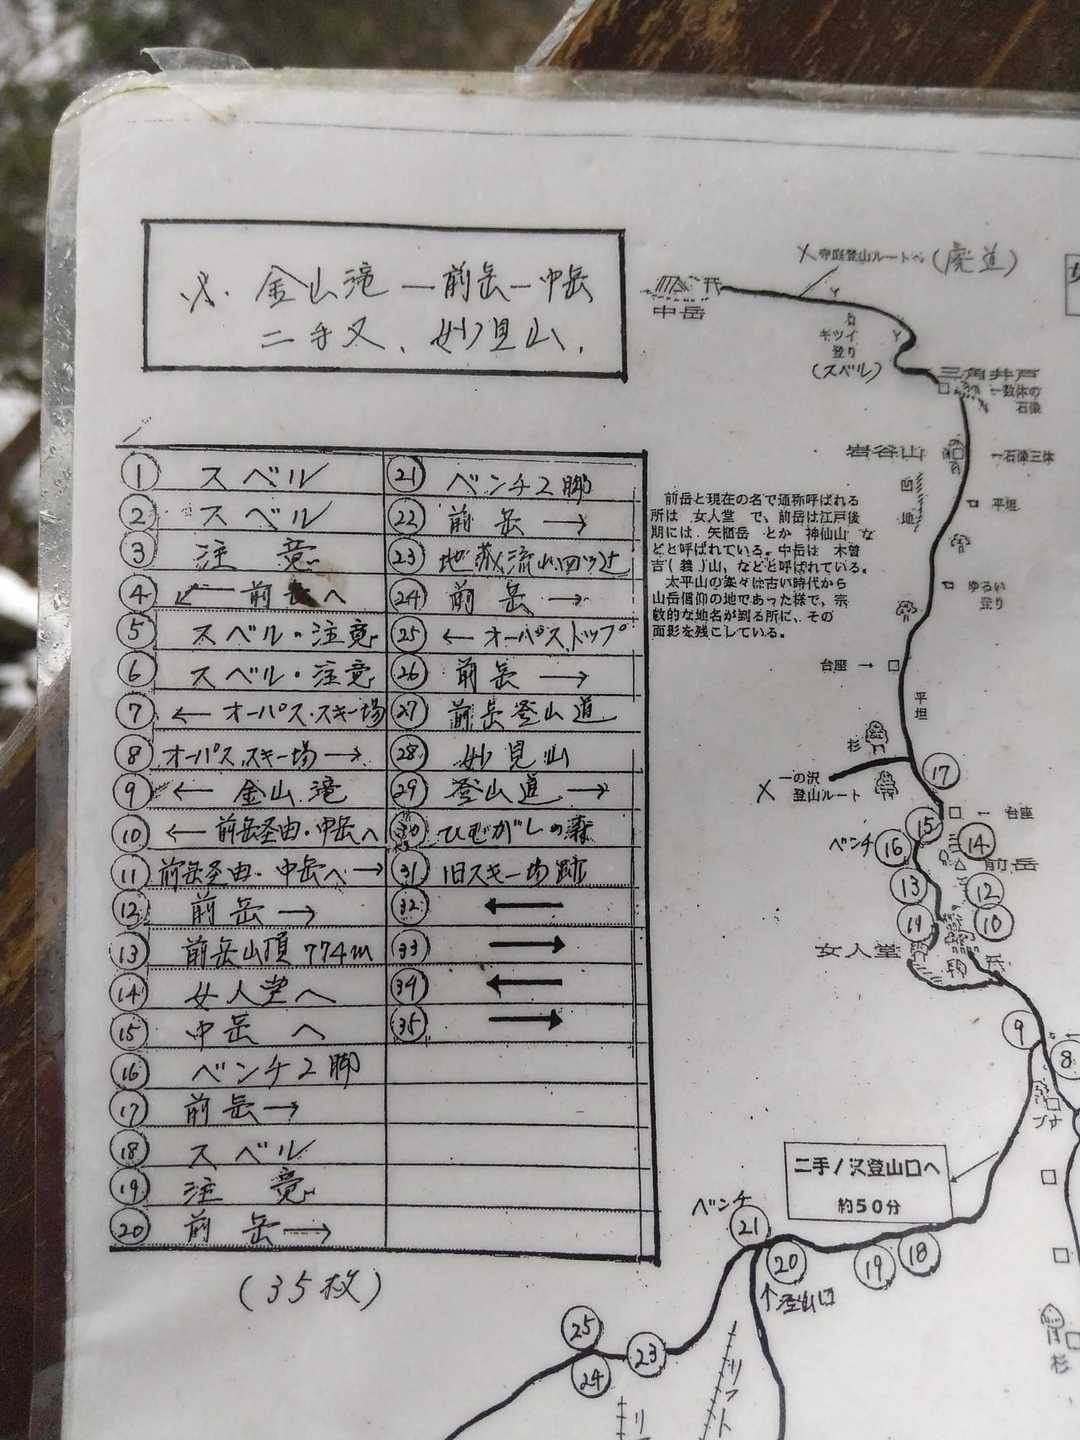 金山滝ー前岳ー中岳
二手又、妙見山、
① スベル
② スベル
③ 注意
④ ← 前岳へ
⑤ スベル・注意
⑥ スベル・注意
⑦ ← オーパス・スキー場
⑧ オーパススキー場→
⑨ ← 金山滝
⑩ ← 前岳経由・中岳へ
⑪ 前岳経由・中岳へ→
⑫ 前岳→
⑬ 前岳山頂 774m
⑭ 女人堂へ
⑮ 中岳へ
⑯ ベンチ2脚
⑰ 前岳→
⑱ スベル
⑲ 注意
⑳ 前岳→
㉑ ベンチ2脚
㉒ 前岳→
㉓ 地蔵流山四ツ辻
㉔ 前岳→
㉕ ←オーパストップ
㉖ 前岳→
㉗ 前岳登山道
㉘ 妙見山
㉙ 登山道→
㉚ ひむがしの森
㉛ 旧スキー場跡
㉜ ←
㉝ →
㉞ ←
㉟ →
(35枚)
登山ルートへ(廃道)
中岳
キツイ
登り
(スベル)
三角井戸
←数体の
石像
岩谷山
←石像三体
凹
地
平坦
前岳と現在の名で通称呼ばれる
所は 女人堂 で、前岳は江戸後
期には、矢櫃岳 とか 神仙山 な
どと呼ばれている。中岳は 木曽
吉(義)山、などと呼ばれている。
太平山の峯々は古い時代から
山岳信仰の地であった様で、宗
教的な地名が到る所に、その
面影を残こしている。
ゆるい
登り
台座→
平
坦
杉
⑰
一の沢
登山ルート
←台座
⑮
ベンチ
⑯
⑭
前岳
⑬
⑫
⑪
⑩
女人堂
⑨
⑧
ブナ
二手ノ沢登山口へ
約50分
ベンチ
㉑
⑳
⑲
⑱
↑登山口
㉕
㉔
㉓
リフト
リ
杉